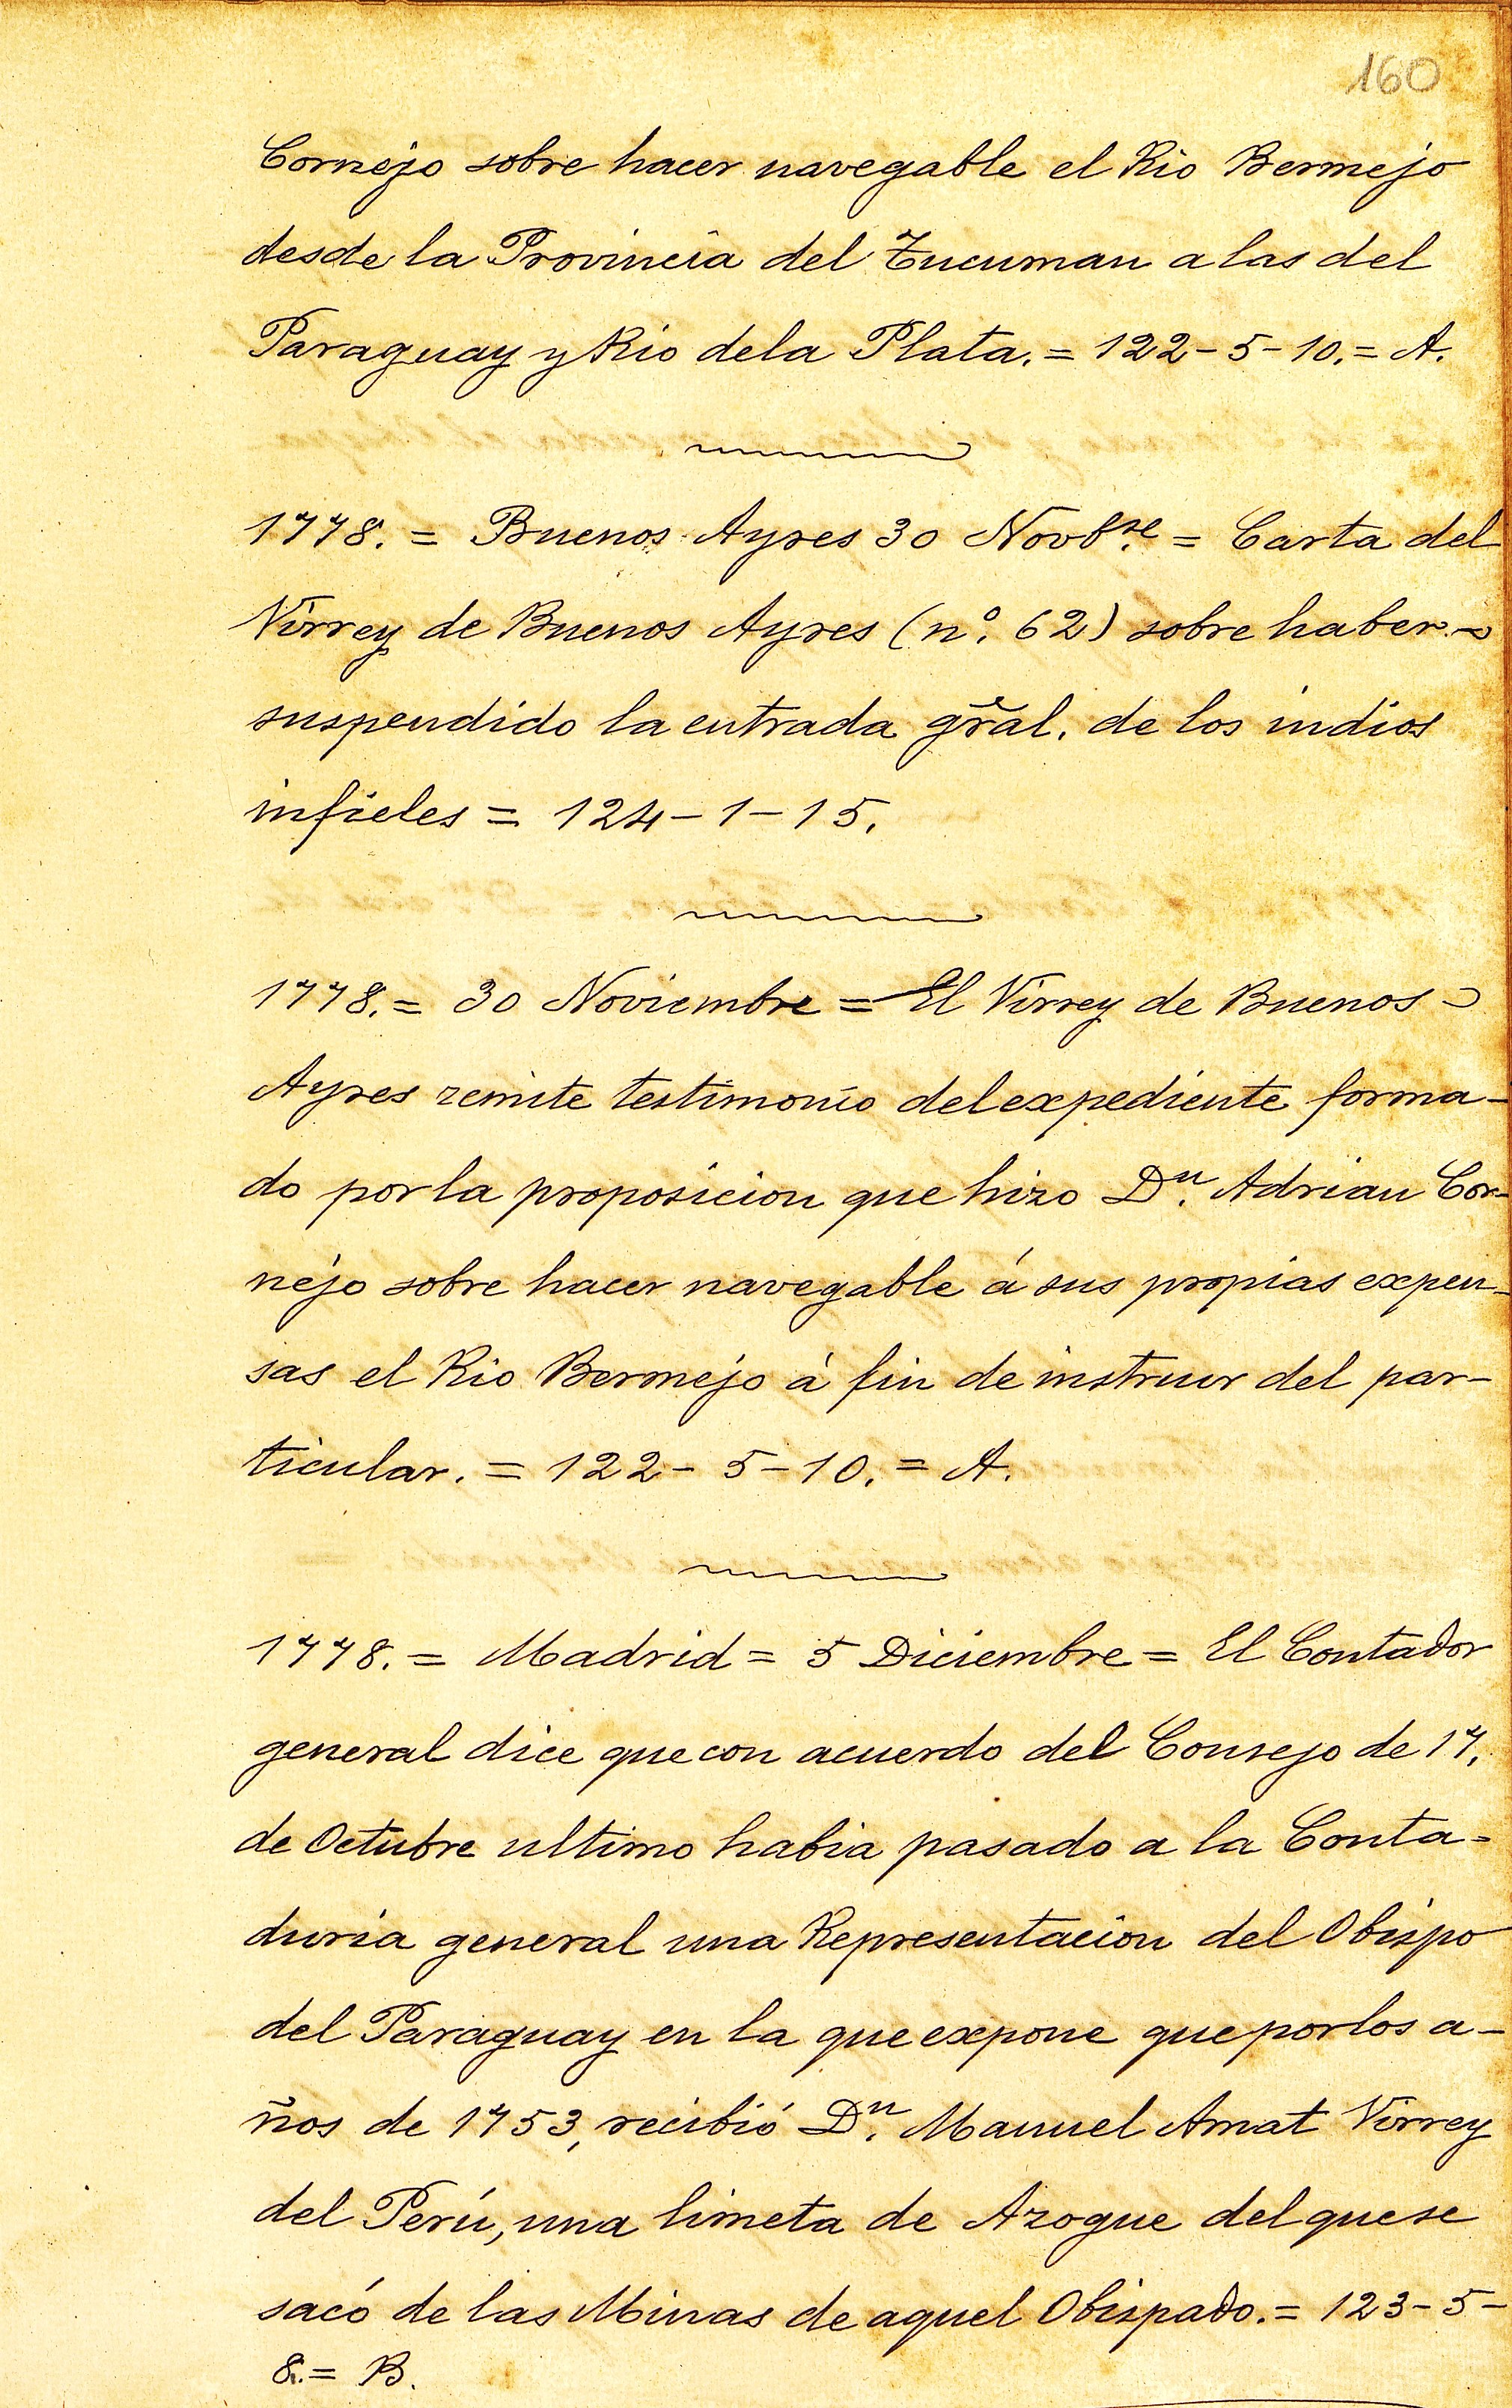 160
Cornejo sobre hacer navegable el Rio Bermejo
desde la Provincia del Tucuman a las del
Paraguay y Rio dela Plata. = 122-5-10. = A.
1778. = Buenos Ayres 30 Novbre. = Carta del
Virrey de Buenos Ayres (nº. 62) sobre haber
suspendido la entrada gral. de los indios
infieles = 124-1-15.
1778. = 30 Noviembre = El Virrey de Buenos
Ayres remite testimonio del expediente forma-
do por la proposicion que hizo Dn. Adrian Cor-
nejo sobre hacer navegable á sus propias expen-
sas el Rio Bermejo á fin de instruir del par-
ticular. = 122-5-10. = A.
1778. = Madrid = 5 Diciembre = El Contador
general dice que con acuerdo del Consejo de 17.
de Octubre ultimo habia pasado a la Conta-
duria general una Representacion del Obispo
del Paraguay en la que expone que por los a-
ños de 1753, recibió Dn. Manuel Amat Virrey
del Perú, una limeta de Azogue del que se
sacó de las Minas de aquel Obispado. = 123-5-
8. = B.